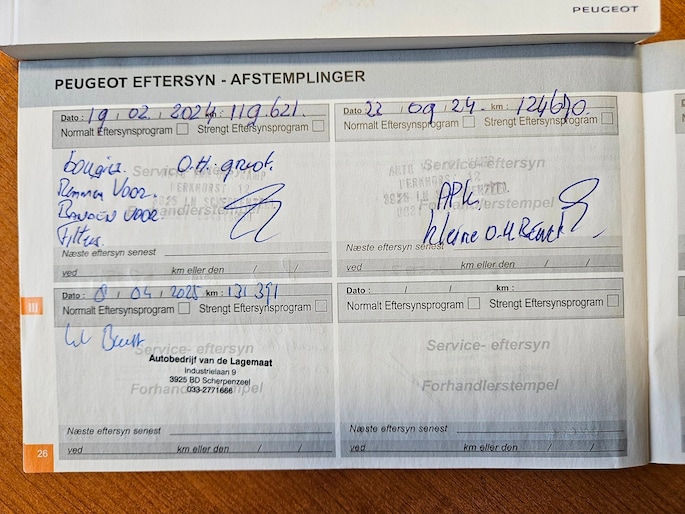 PEUGEOT
PEUGEOT EFTERSYN - AFSTEMPLINGER
Dato : 19 / 02 / 2024 km : 119.621.
Normalt Eftersynsprogram Strengt Eftersynsprogram
bougies. O.H. groot.
Remmen Voor.
Banden Voor.
Filters.
Service- eftersyn
Forhandlerstempel
Næste eftersyn senest
ved km eller den / /
Dato : 22 / 09 / 24. km :
Normalt Eftersynsprogram Strengt Eftersynsprogram
Service- eftersyn
APK
Forhandlerstempel
kleine O.H.
Næste eftersyn senest
ved km eller den / /
III
Dato : 8 / 04 / 2025 km : 131391
Normalt Eftersynsprogram Strengt Eftersynsprogram
Service- eftersyn
Autobedrijf van de Lagemaat
Industrielaan 9
3925 BD Scherpenzeel
033-2771666
Forhandlerstempel
Næste eftersyn senest
ved km eller den / /
Dato : / / km :
Normalt Eftersynsprogram Strengt Eftersynsprogram
Service- eftersyn
Forhandlerstempel
Næste eftersyn senest
ved km eller den / /
26